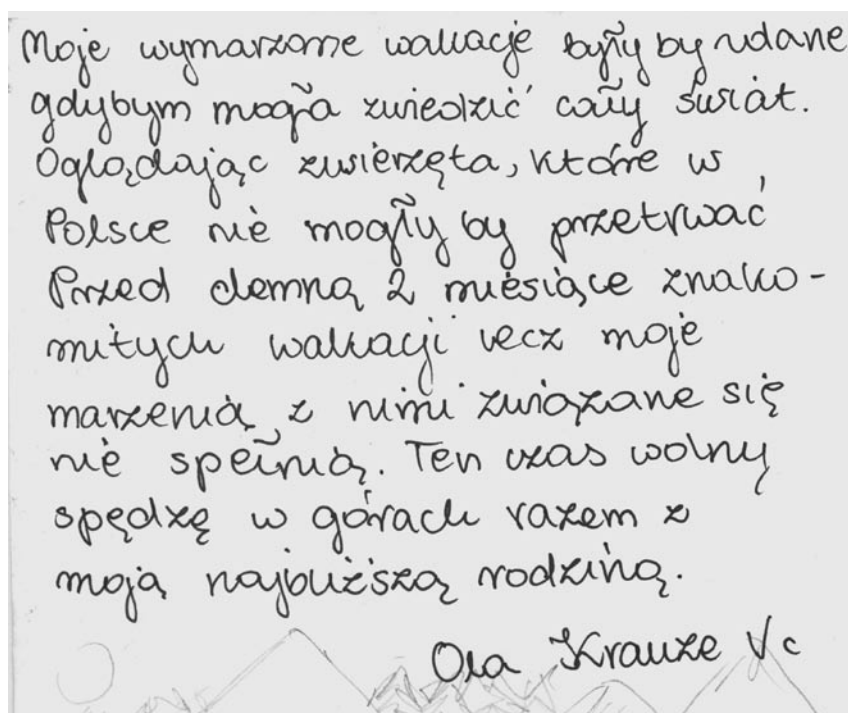 Moje wymarzone wakacje były by udane
gdybym mogła zwiedzić cały świat.
Oglądając zwierzęta, które w
Polsce nie mogły by przetrwać
Przed demną 2 miesiące znako-
mitych wakacji lecz moje
marzenia, z nimi związane się
nie spełnią. Ten czas wolny
spędzę w górach razem z
moją najbliższą rodziną.
Ola Krauze Vc